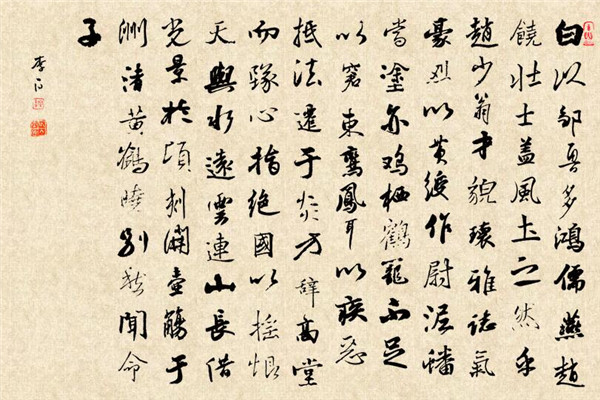 白以邹魯多鴻儒燕趙
饒壮士盖風土之然乎
趙少翁才貌瓌雅誌氣
豪烈以黄綬作尉泥蟠
當塗亦鸡栖鶴籠不足
以窘東鸞鳳耳以疾惡
抵法遷于炎方辞高堂
而隊心指絶國以摇恨
天與水遠雲連山長借
光景於頃刻開壷觴于
洲渚黄鶴曉别愁聞命
子
李白